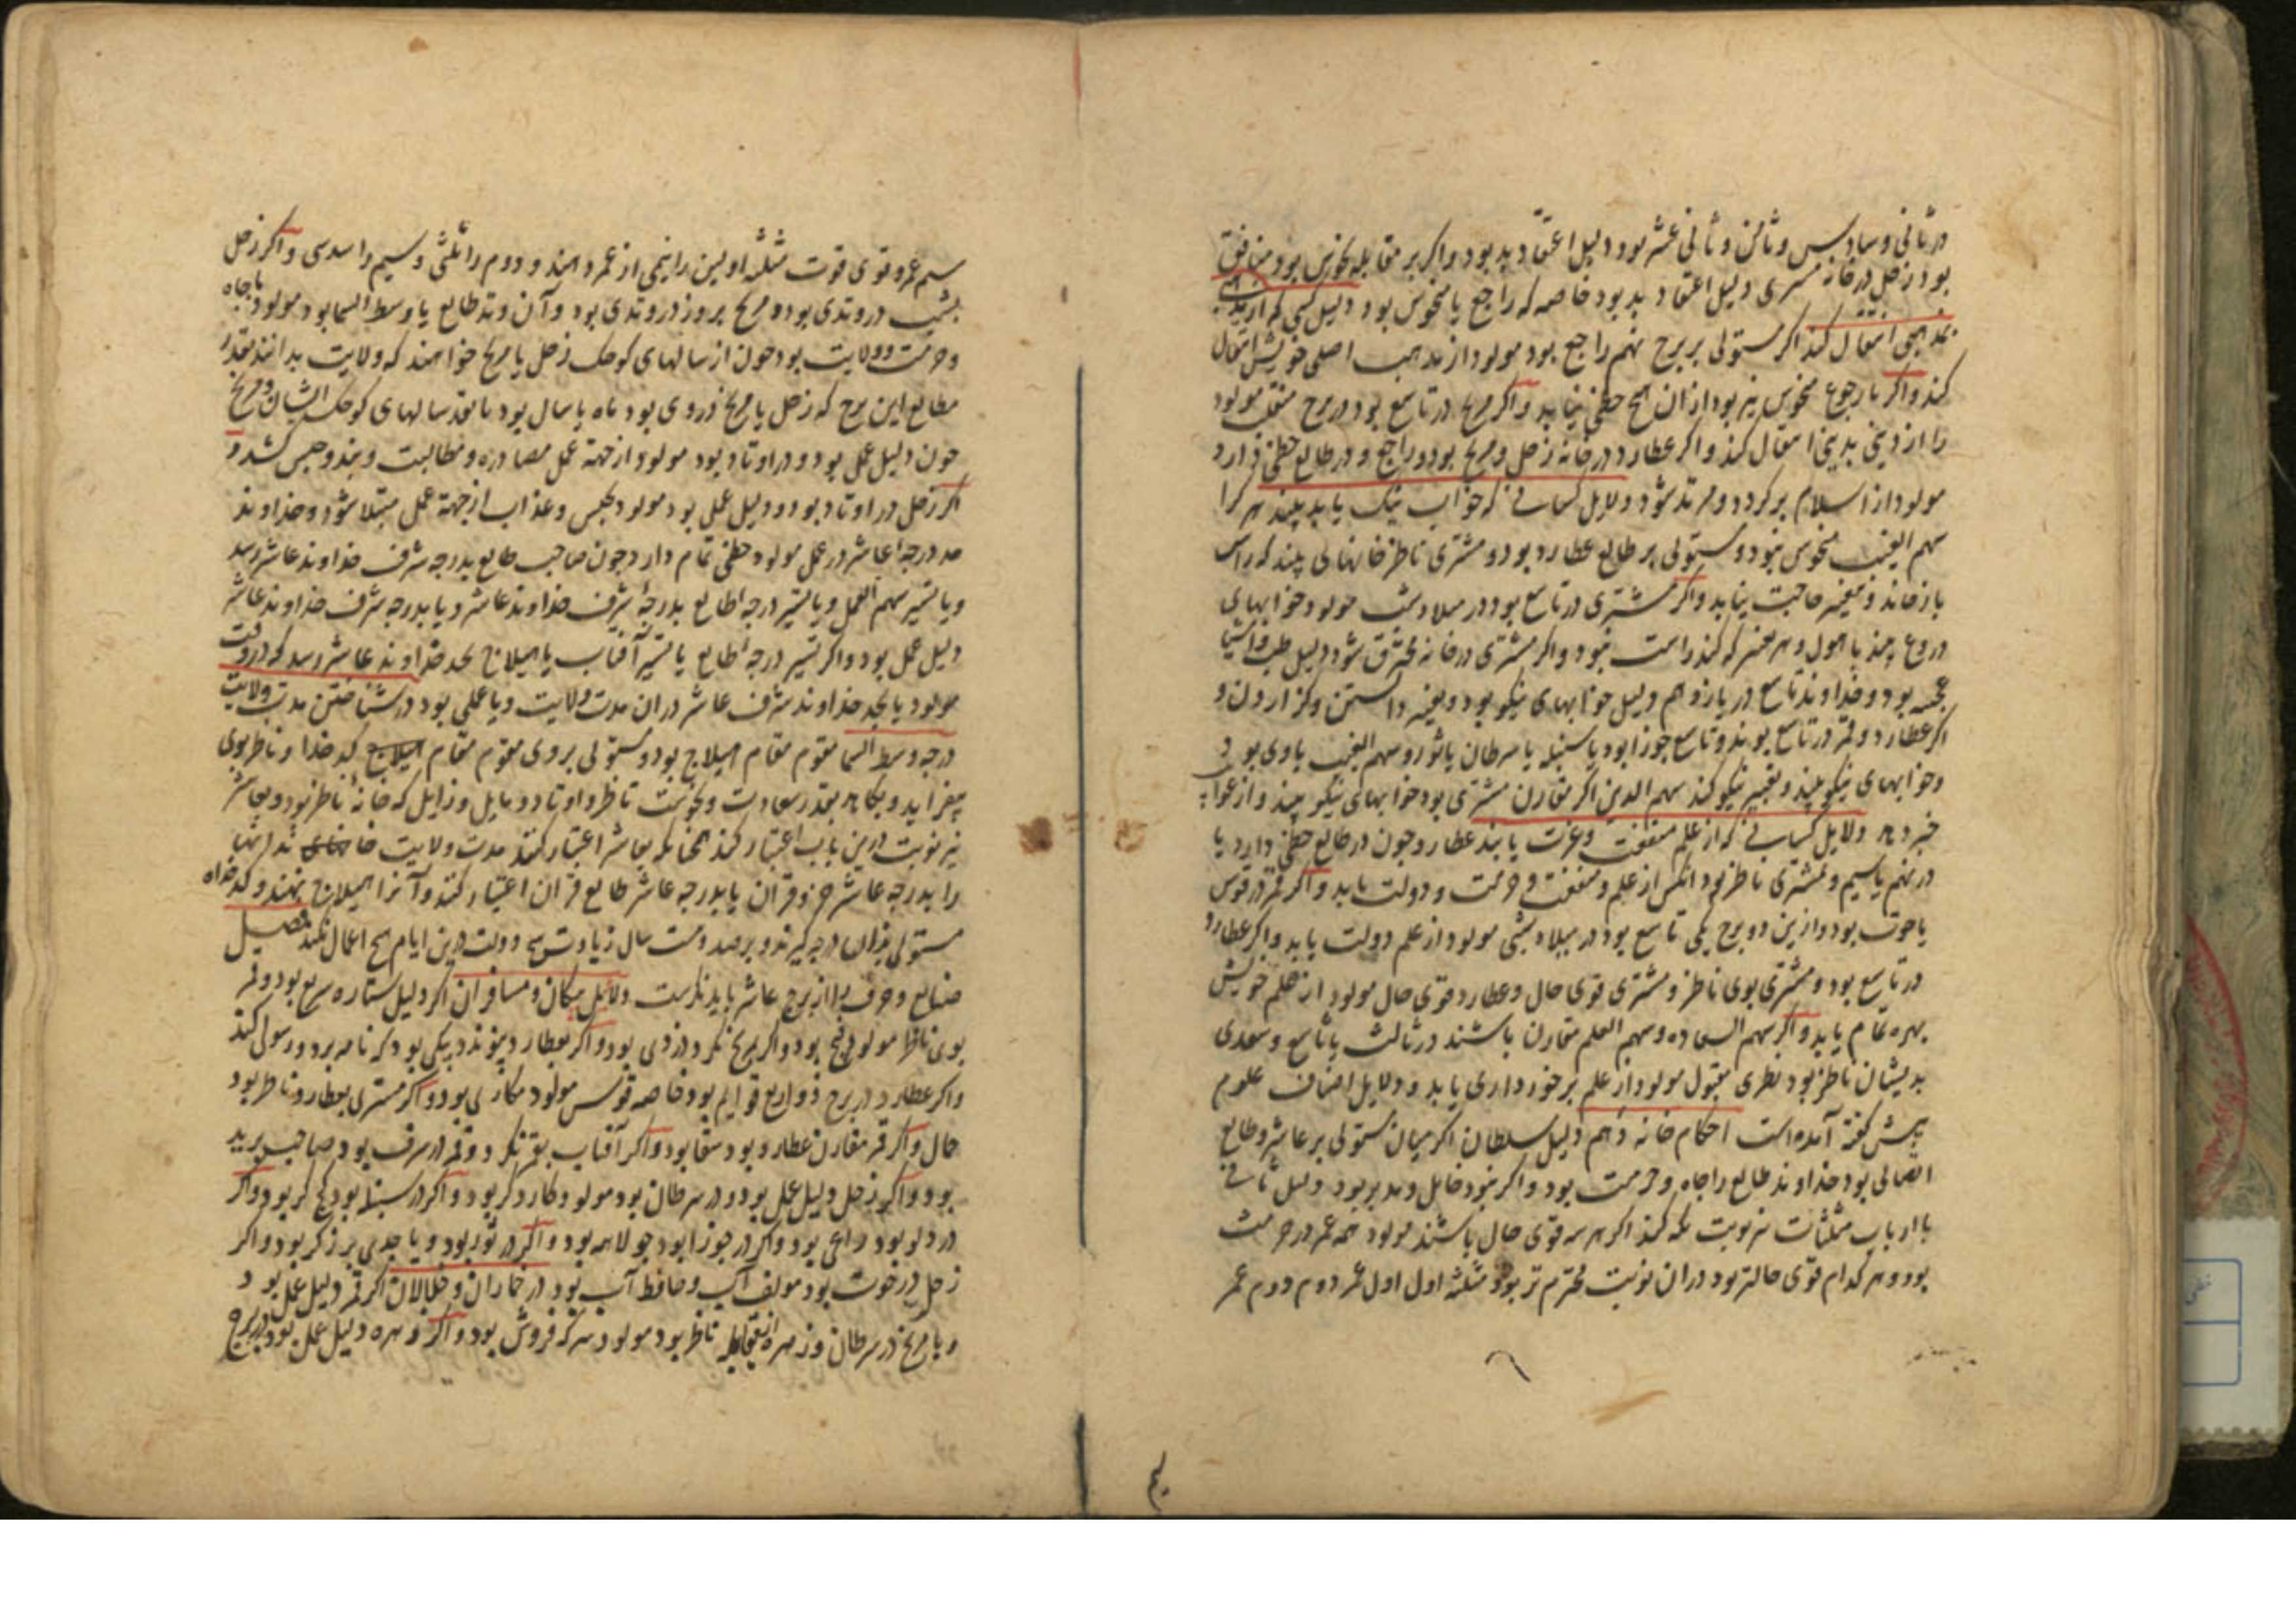 در ثانی و سادس و ثامن و ثانی عشر بود دلیل اعتقاد بد بود و اگر بر مقابله نحوس بود منافق
بود زحل در خانه مشتری دلیل اعتقاد بد بود خاصه که راجع یا منحوس بود دلیل کسی که از
بمذهبی انتقال کند اگر مستولی بر برج نهم راجع بود مولود از مذهب اصلی خویش انتقال
کند و اگر با رجوع منحوس نیز بود از آن هیچ حظی نیابد و اگر مریخ در تاسع بود در برج منقلب مولود
را از دینی بدینی انتقال کند و اگر عطارد در خانه زحل و مریخ بود و راجع و در طالع حظی دارد
مولود از اسلام برگردد و مرتد شود دلایل کسانی که خواب نیک یا بد بینند هر کرا
سهم الغیب منحوس نبود و مستولی بر طالع عطارد بود و مشتری ناظر خوابهائی بیند که راس
باز خاند و تعبیر حاجت نیاید و اگر مشتری در تاسع بود در میلاد شب مولود خوابهای
دروغ بیند با هول و هر تعبیر که کند راست نبود و اگر مشتری در خانه محترق شود دلیل طلب اشیا
عجیبه بود و خداوند تاسع در یازدهم دلیل خوابهای نیکو بود و تعبیر دانستن و گزاردن و
اگر عطارد و قمر در تاسع بوند و تاسع جوزا بود یا سنبله یا سرطان یا ثور و سهم الغیب با وی بود
و خوابهای نیکو بیند و تعبیر نیکو کند سهم الدین اگر مقارن مشتری بود خوابهای نیکو بیند و از
خبر دهد دلایل کسانی که از علم منفعت و عزت یابند عطارد چون در طالع حظی دارد یا
در نهم یا سیم و مشتری ناظر بود آنکس از علم و منفعت و حرمت و دولت یابد و اگر قمر در قوس
یا حوت بود و ازین دو برج یکی تاسع بود در میلاد شبی مولود از علم دولت یابد و اگر عطارد
در تاسع بود و مشتری بوی ناظر و مشتری قوی حال و عطارد قوی حال مولود از علم خویش
بهره تمام یابد و اگر سهم السعاده و سهم العلم مقارن باشند در ثالث یا تاسع و سعدی
بدیشان ناظر بود نظری مقبول مولود از علم برخورداری یابد و دلایل اصناف علوم
پیش گفته آمده است احکام خانه دهم دلیل سلطان اگر میان مستولی بر عاشر و طالع
اتصالی بود خداوند طالع را جاه و حرمت بود و اگر نبود خامل و مدبر بود دلیل ثانی
با ارباب مثلثات نیز نوبت نگه کند اگر هر سه قوی حال باشند مولود همه عمر در حرمت
بود و هر کدام قوی حالتر بود در آن نوبت محترم تر بود مثلثه اول اول عمر دوم دوم عمر
سیم عمر و قوی قوت مثلثه اولین را نیمی از عمر دهند و دوم را ثلثی و سیم را سدسی و اگر زحل
بشب در وتدی بود و مریخ بروز در وتدی بود و آن وتد طالع یا وسط السما بود مولود با جاه
و حرمت و ولایت بود چون از سالهای کوچک زحل یا مریخ خواهند که ولایت بدانند بقدر
مطالع این برج که زحل یا مریخ در وی بود ماه یا سال بود یا بقدر سالهای کوچک ایشان و مریخ
چون دلیل عمل بود و در اوتاد بود مولود از جهة عمل مصادره و مطالبت و بند و حبس کشد و
اگر زحل در اوتاد بود و دلیل عمل بود مولود بحبس و عذاب از جهة عمل مبتلا شود و خداوند
حد درجه عاشر در عمل مولود حظی تمام دارد چون صاحب طالع بدرجه شرف خداوند عاشر رسد
و یا تسییر سهم العمل و یا تسییر درجه طالع بدرجه شرف خداوند عاشر و یا بدرجه شرف خداوند عاشر
دلیل عمل بود و اگر تسییر درجه طالع یا تسییر آفتاب یا هیلاج بحد خداوند عاشر رسد که در وقت
مولود یا بحد خداوند شرف عاشر در آن مدت ولایت و یا عملی بود در شناختن مدت ولایت
درجه وسط السما مقوم مقام هیلاج بود و مستولی بر وی مقوم مقام کدخدا و ناظر بوی
بیفزاید و بکاهد بقدر سعادت و نحوست ناظر و اوتاد و مایل و زایل که خانه ناظر بود و بعاشر
نیز نوبت درین باب اعتبار کند همچنانکه بعاشر اعتبار کنند مدت ولایت خانه انتها
را بدرجه عاشر جزو قران یا بدرجه عاشر طالع قران اعتبار کنند و آنرا هیلاج نهند و کدخداه
مستولی بدان درجه گیرند و بر صد و بیست سال زیادت هیچ دولت درین ایام هیچ اعمال نکند تفصیل
صنایع و حرفه را از برج عاشر باید نگریست دلایل پیکان و مسافران اگر دلیل ستاره سریع بود و قمر
بوی ناظر مولود فیج بود و اگر مریخ نگرد دزدی بود و اگر بعطارد پیوندد پیکی بود که نامه برد و رسولی کند
و اگر عطارد در برج ذو اربع قوایم بود خاصه قوس مولود مکاری بود و اگر مشتری بعطارد ناظر بود
حمال و اگر قمر مقارن عطارد بود سقا بود و اگر آفتاب بقمر نگرد و قمر در شرف بود صاحب برید
بود و اگر زحل دلیل عمل بود و در سرطان بود مولود کاردگر بود و اگر در سنبله بود گچ گر بود و اگر
در دلو بود راعی بود و اگر در جوزا بود جولاهه بود و اگر در ثور بود و یا جدی برزگر بود و اگر
زحل در حوت بود مولف آب و حافظ آب بود در خماران و خلالان اگر قمر دلیل عمل بود و
و با مریخ در سرطان و زهره از مقابله ناظر بود مولود سرکه فروش بود و اگر زهره دلیل عمل بود در برج